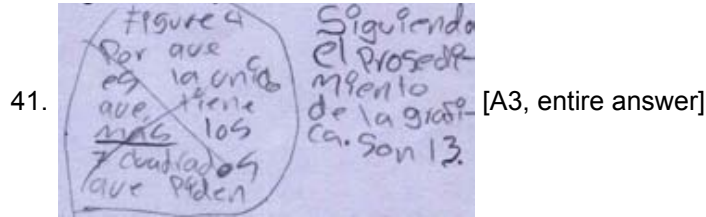 41.
Figure 4
Por que
es la unica
que tiene
mas los
7 cuadrados
que piden
Siguiendo
el prosedi-
miento
de la grafi-
ca. Son 13.
[A3, entire answer]